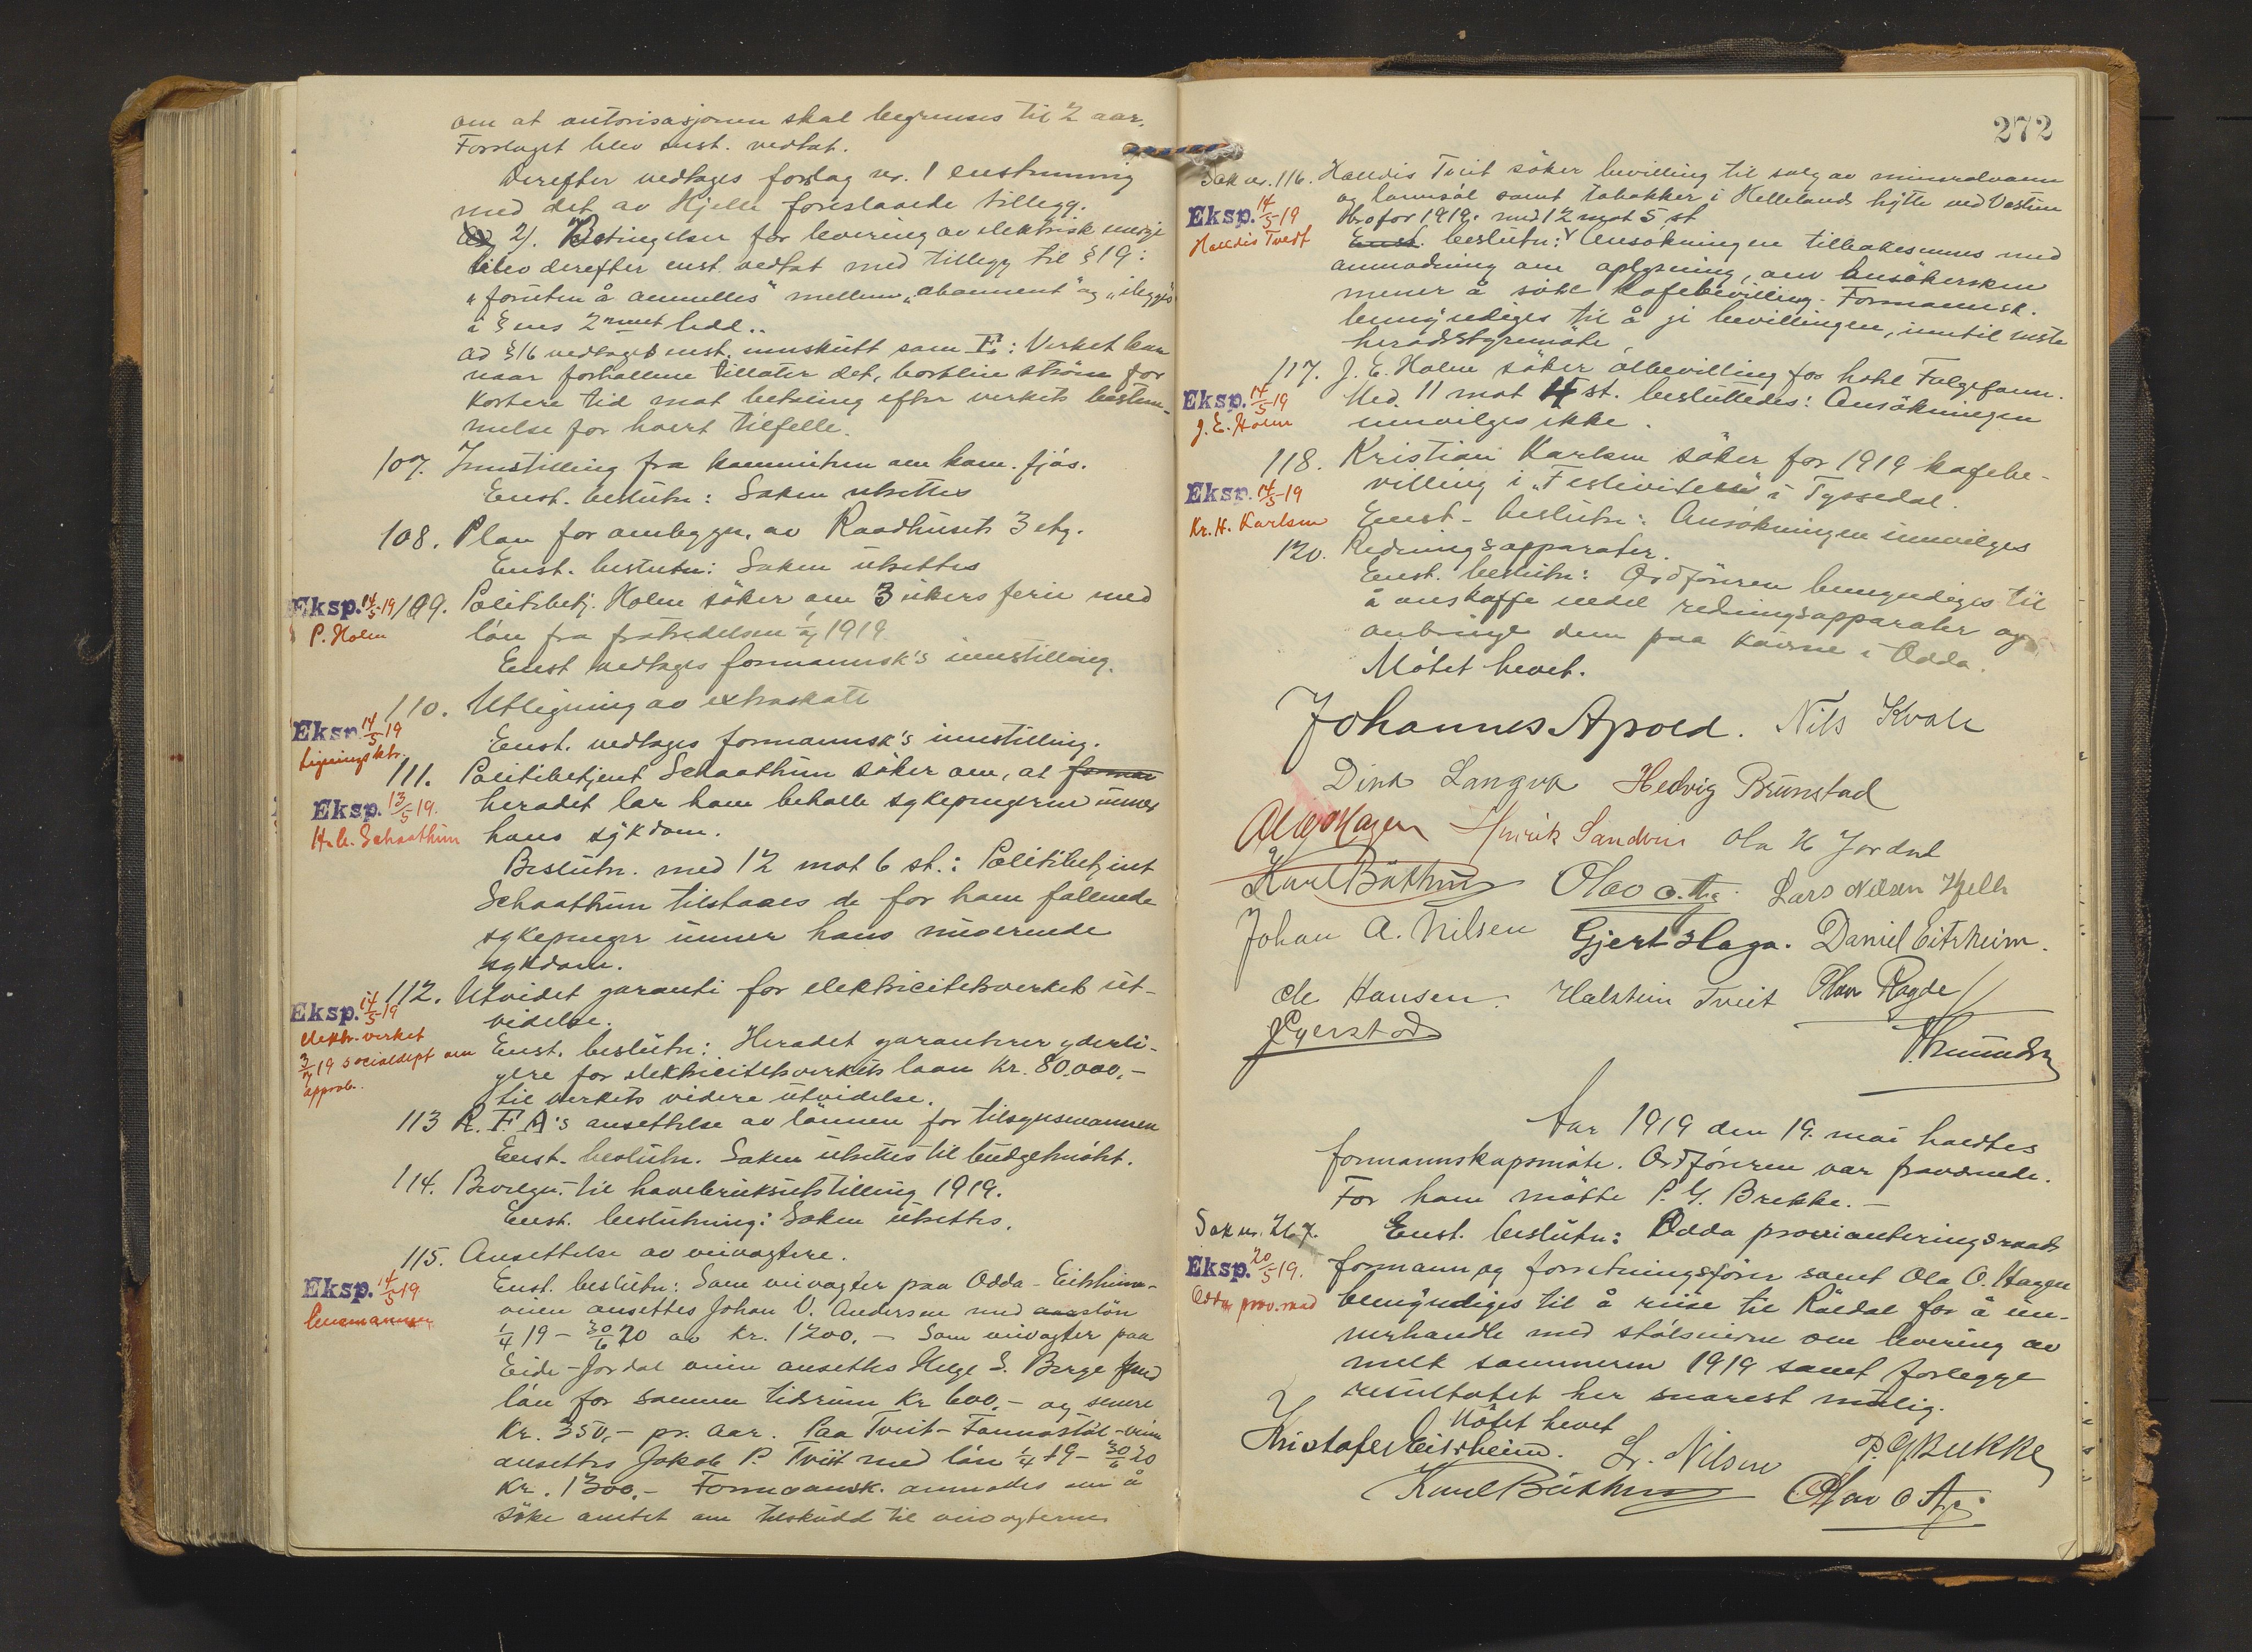 om at autorisasjonen skal begrenses til 2 aar.
Forslaget blev enst. vedtat.
Derefter vedtages forslag nr. 1 enstemmig
med det av Hjelle foreslaaede tillegg.
2). Betingelser for levering av elektrisk energi
blev derefter enst. vedtat med tillegg til § 19:
"foruten å anmeldes" mellem "abonnent" og "ilegges"
i § ens 2net ledd..
ad § 16 vedtages enst. innskutt som F.: Verket kan
naar forhallene tillater det, bortleie strøm for
kortere tid mot betaling efter verkets bestem-
melse for hvert tilfelle.
107. Innstilling fra kommiteen om kom. fjøs.
Enst. beslutn: Saken utsettes
108. Plan for ombyggn. av Raadhusets 3 etg.
Enst. beslutn: Saken utsettes
Eksp. 14/5-19 109. Politibetj. Holm søker om 3 ukers ferie med
P. Holm
løn fra fratredelsen 1/7 1919.
Enst vedtages formannsk's innstilling.
110. Utligning av extraskatt
Eksp. 14/5 19
Ligningsktr.
Enst. vedtages formannsk's innstilling.
111. Politibetjent Schaathun søker om, at forman
Eksp. 13/5 19.
heradet lar ham beholle sykepengene under
H. Schaathun
hans sykdom.
Beslutn. med 12 mot 6 st.: Politibetjent
Schaathun tilstaaes de for ham fallende
sykepenger under hans nuværende
sykdom.
112. Utvidet garanti for elektricitetsverkets ut-
Eksp. 14/5-19
videlse.
elektr. verket
3/7 19 Socialdept om
approb..
Enst. beslutn: Heradet garanterer yderli-
gere for elektricitetsverkets laan Kr. 80.000,-
til verkets videre utvidelse.
113 R. F. A's ansettelse av lønnen for tilsynsmannen
Enst. beslutn. Saken utsettes til budgetmøtet.
114. Bevilgn. til havebruksutstilling 1919.
Enst. beslutning: Saken utsettes.
115. Ansettelse av veivogtere.
Eksp. 14/5-19
Lensmannen
Enst. beslutn: Som veivogter paa Odda-Eitrheims-
veien ansettes Johan O. Andersen med aarsløn
1/4 19 - 30/6 20 av kr. 1200,- Som veivogter paa
Eide-Jordal veien ansettes Helge S. Berge med
løn for samme tidsrum Kr 600,- og senere
Kr. 350,- pr. aar. Paa Tveit-Fonnastøl-veien
ansettes Jakob P. Tveit med løn 1/4 19 - 30/6 20
Kr. 1300,- Formannsk. anmodes om å
søke amtet om tilskudd til veivogterne
272
Sak nr. 116. Halldis Tveit søker bevilling til salg av mineralvann
og tannsøl samt tobakker i Hellelands hytte ved Vestre
Eksp. 14/5-19
Halldis Tveit
Bro for 1919. med 12 mot 5 st
Enst. beslutn: Ansøkningen tilbakesennes med
anmodning om oplysning, om Ansøkersken
mener å søke kafebevilling. Formannsk.
bemyndiges til å gi bevillingen, inntil neste
heradsstyremøte
117. J. E. Holm søker ølbevilling for hotel Folgefonn.
Eksp. 14/5-19
J. E. Holm
Med 11 mot 4 st. besluttedes: Ansøkningen
innvilges ikke.
118. Kristian Karlsen søker for 1919 kafebe-
Eksp. 14/5-19
Kr. H. Karlsen
villing i "Festiviteten" i Tyssedal.
Enst. beslutn: Ansøkningen innvilges
120. Redningsapparater.
Enst. beslutn: Ordføreren bemyndiges til
å anskaffe endel redningsapparater og
anbringe dem paa kaierne i Odda.
Møtet hevet.
Johannes Apold. Nils Kvale
Dina Langva Hedvig Brunstad
Hagen Henrik Sandvin Ola H Jordal
Karl Bøthun Olav O. Lars Nilsen Hjelle
Johan A. Nilsen Gjert Haga. Daniel Eitrheim.
Ole Hansen. Halstein Tveit Olav Ragde
J Gjerstad
Aar 1919 den 19. mai holdtes
formannskapsmøte. Ordføreren var fraværende.
For ham møtte P. G. Brekke.-
Sak nr. 267. Enst. beslutn: Odda provianteringsraads
Eksp. 20/5 19.
Odda prov. raad
formann og forretningsfører samt Ola O. Hagen
bemyndiges til å reise til Røldal for å un-
nerhandle med stølseierne om levering av
melk sommeren 1919 samt forlegge
resultatet her snarest mulig.
Møtet hevet
Kristofer Eitrheim. Nilsen P. G. Brekke
Karl Bøthun Olav O